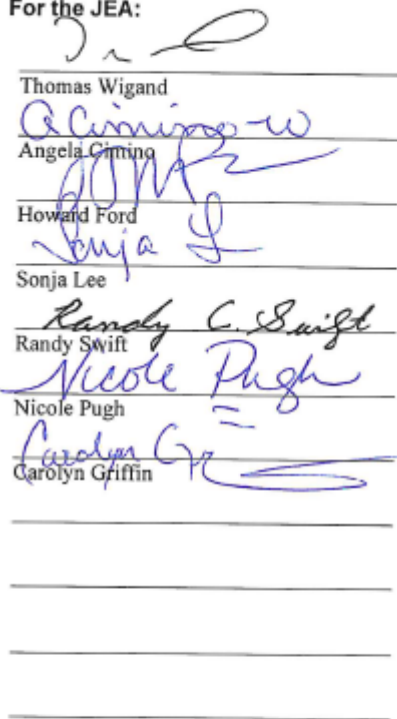 For the JEA:
Thomas Wigand
A Cimino-W
Angela Cimino
Howard Ford
Sonja L
Sonja Lee
Randy C. Swift
Randy Swift
Nicole Pugh
Nicole Pugh
Carolyn Gr
Carolyn Griffin